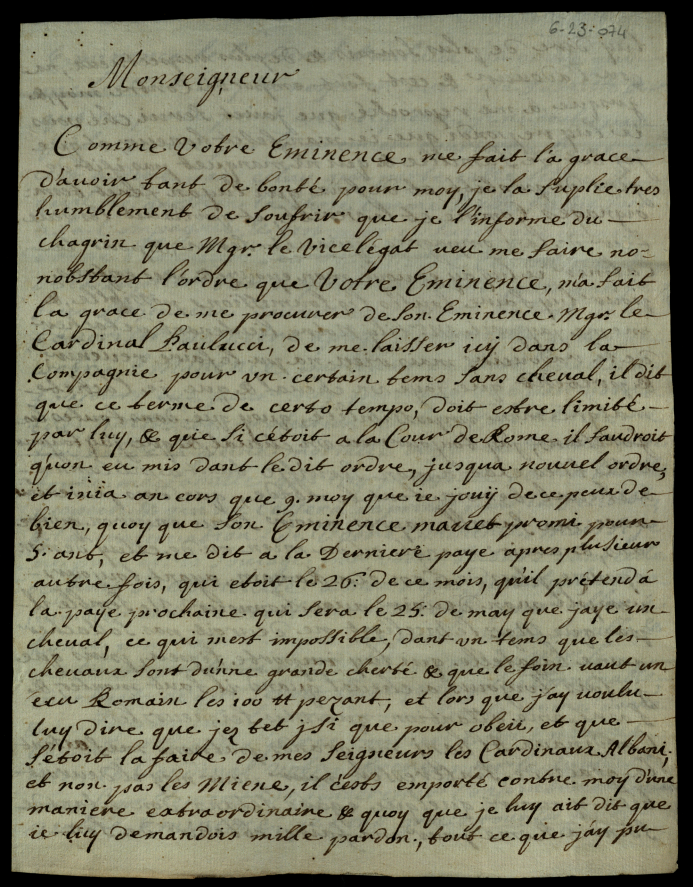 6-23-074
Monseigneur
Comme Votre Eminence me fait la grace
d'avoir tant de bonté pour moy, je la suplie tres
humblement de soufrir que je l'informe du
chagrin que Mgr. le Vicelégat veu me faire no-
nobstant l'ordre que Votre Eminence, m'a fait
la grace de me procurer de son Eminence Mgr. le
Cardinal Paulucci, de me laisser icÿ dans la
Compagnie pour vn certain tems sans cheval, il dit
que ce terme de certo tempo, doit estre limité
par luy, & que si c'étoit a la Cour de Rome il faudroit
qu'on eu mis dant le dit ordre, jusqua nouvel ordre,
et inia an cors que 9. moy que ie jouÿ de ce peux de
bien, quoy que son Eminence mauet promi pour
5. ant, et me dit a la Derniere paye apres plusieur
autre fois, qui etoit le 26. de ce mois, qu'il prétend á
la paye prochaine qui sera le 25. de may que jaye un
cheval, ce qui mest impossible, dant vn tems que les
chevaux sont d'unne grande cherté & que le foin vaut un
ecu Romain les 100 tt pezant, et lors que j'ay voulu
luy dire que jez tet jsi que pour obeii, et que
s'étoit la faire de mes seigneurs les Cardinaux Albani,
et non pas les Miene, il c'ests emporté contre moy d'une
maniere extraordinaire & quoy que je luy ait dit que
ie luy demandois mille pardon, tout ce que j'ay pu